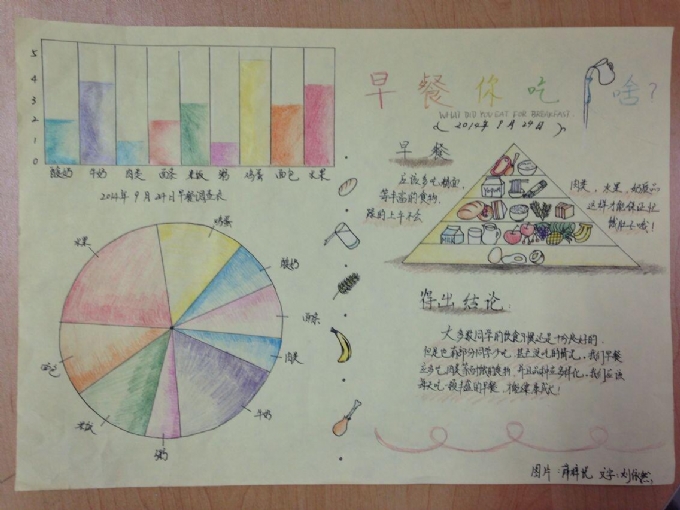 5
4
3
2
1
0
酸奶 牛奶 肉类 面条 米饭 粥 鸡蛋 面包 水果
2014年9月29日早餐调查表
早餐你吃啥?
WHAT DID YOU EAT FOR BREAKFAST
(2014年9月29日)
早餐
应该多吃
等丰富的食物.
肉类、水果、奶制品
这样才能保证
鸡蛋
水果
酸奶
面条
面包
肉类
米饭
粥
牛奶
得出结论
大多数同学的饮食习惯还是十分良好的.
但是也有部分同学少吃、甚至没吃的情况,我们早餐
应多吃肉类等的食物,并且品种应多样化,我们应该
每天吃丰富的早餐,健康成长!
图片: 文字:刘